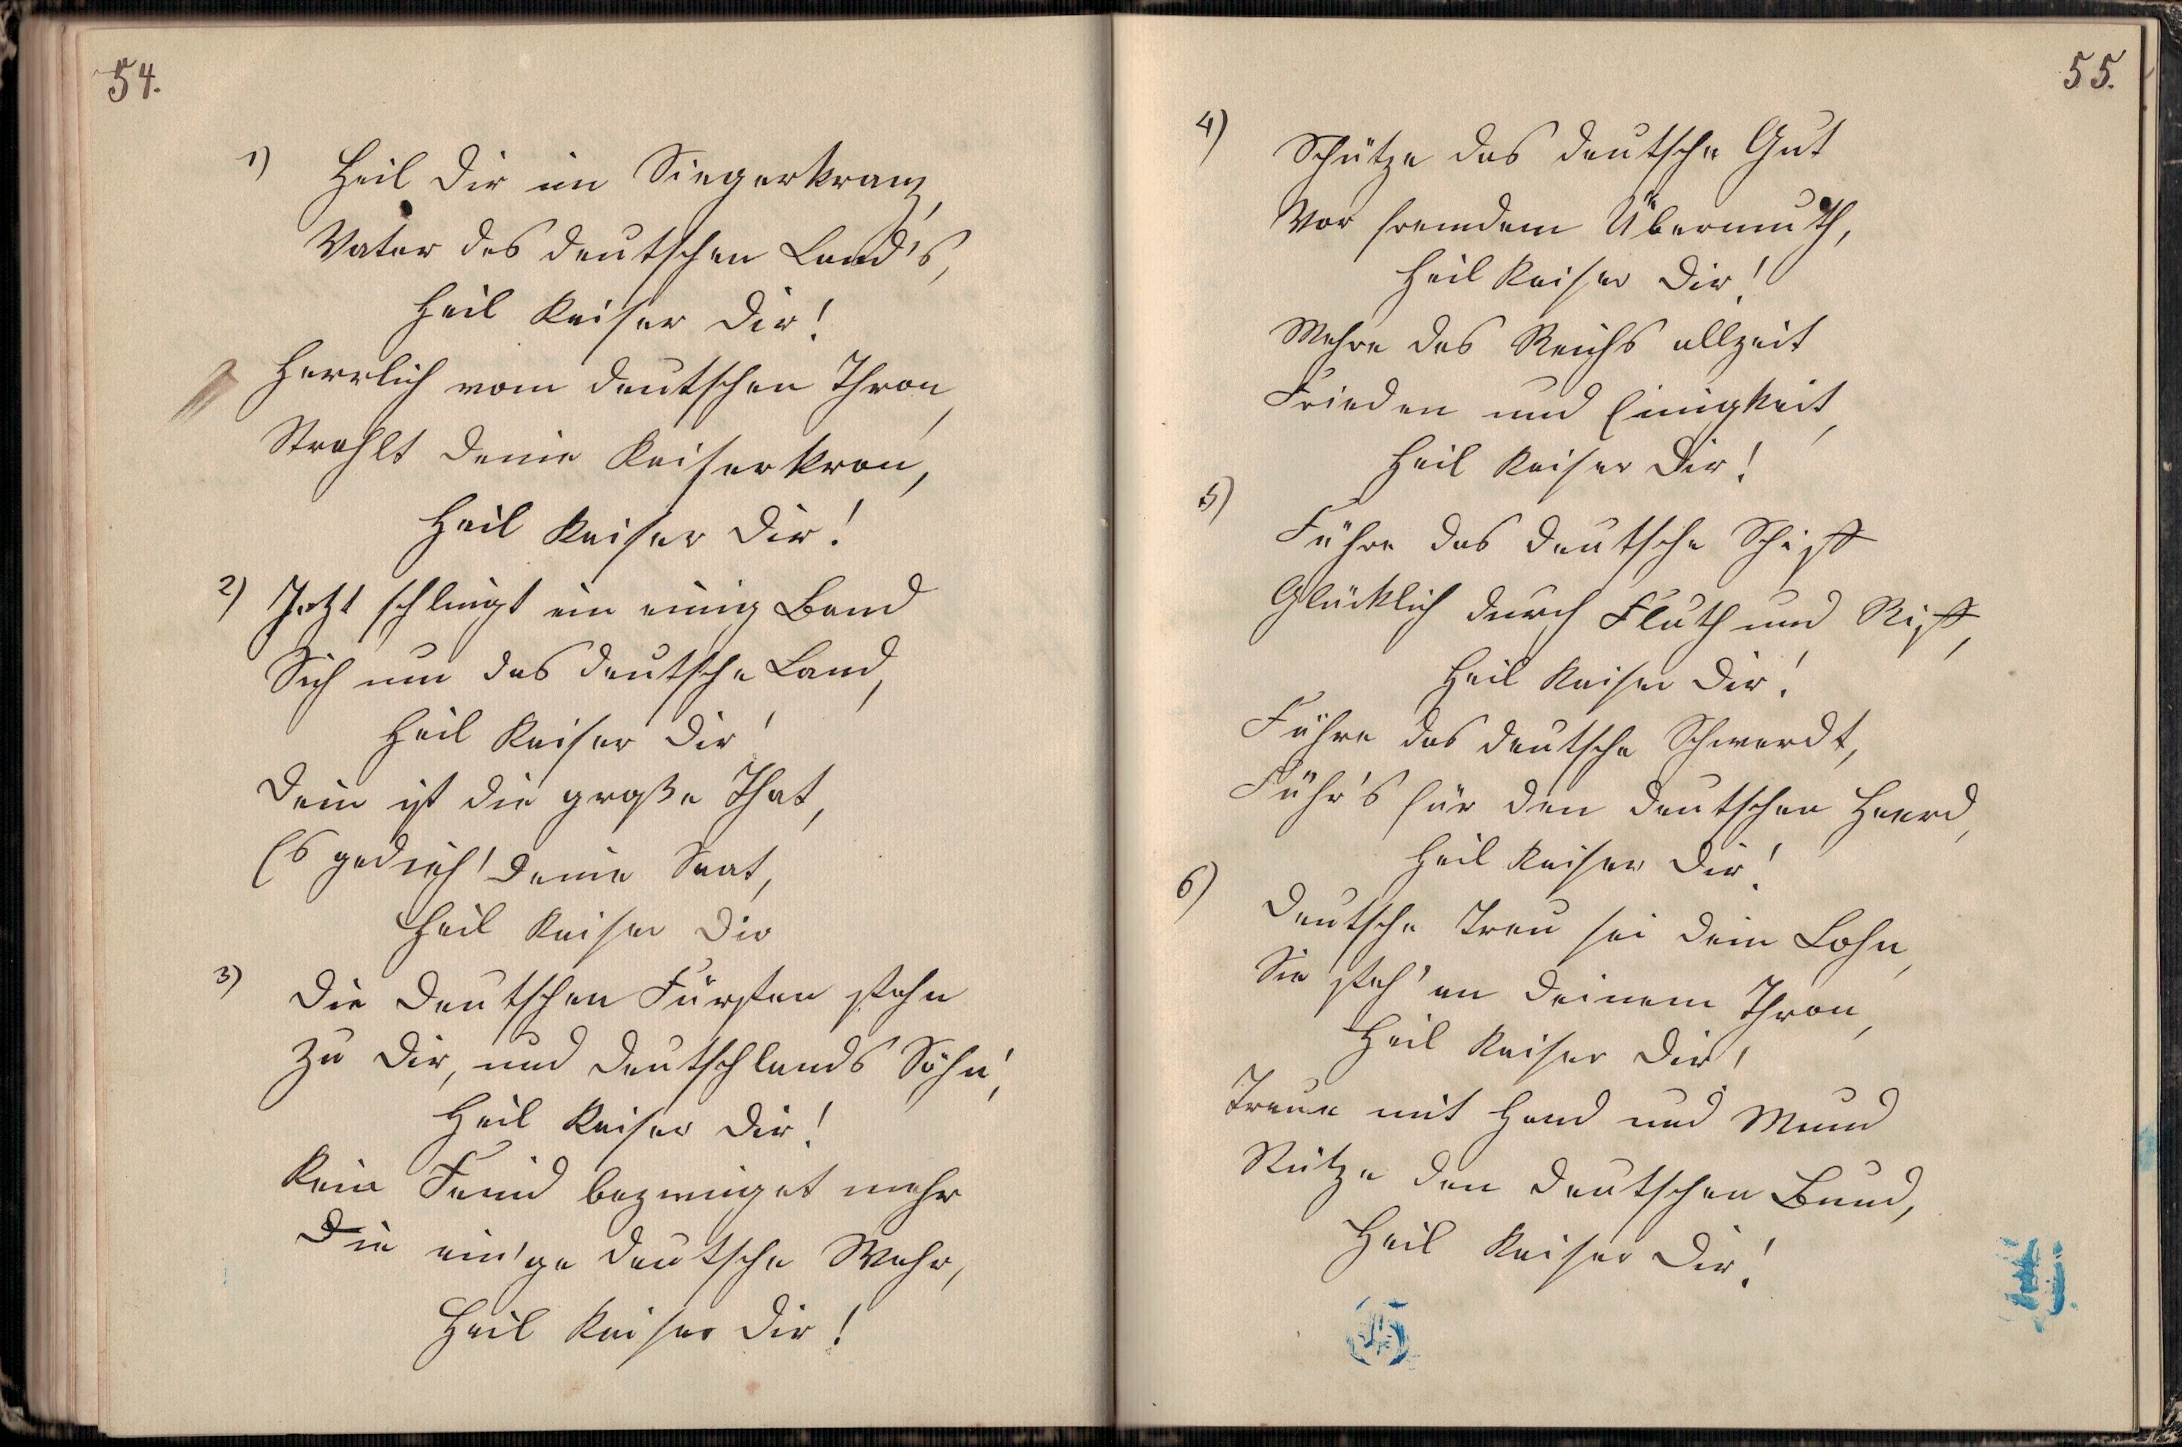 54.
1) Heil Dir im Siegerkranz,
Vater des deutschen Land's,
Heil Kaiser Dir!
Herrlich vom deutschen Thron,
Strahlt Deine Kaiserkron,
Heil Kaiser Dir!
2) Jetzt schlingt ein einig Band
Sich um das deutsche Land,
Heil Kaiser Dir!
Dein ist die große That,
Es gedieh' Deine Saat,
Heil Kaiser Dir
3) Die Deutschen Fürsten stehn
Zu Dir, und Deutschlands Söhn',
Heil Kaiser Dir!
Kein Feind bezwinget mehr
Die ein'ge deutsche Wehr,
Heil Kaiser Dir!
55.
4) Schütze das deutsche Gut
Vor fremdem Übermuth,
Heil Kaiser Dir!
Mehre des Reichs allzeit
Frieden und Einigkeit,
Heil Kaiser Dir!
5) Führe das deutsche Schiff
Glücklich durch Fluth und Riff,
Heil Kaiser Dir!
Führe das deutsche Schwerdt,
Führ's für den deutschen Heerd,
Heil Kaiser Dir!
6) Deutsche Treu sei dein Lohn,
Sie steh' an Deinem Thron,
Heil Kaiser Dir!
Treue mit Hand und Mund
Stütze den deutschen Bund,
Heil Kaiser Dir!